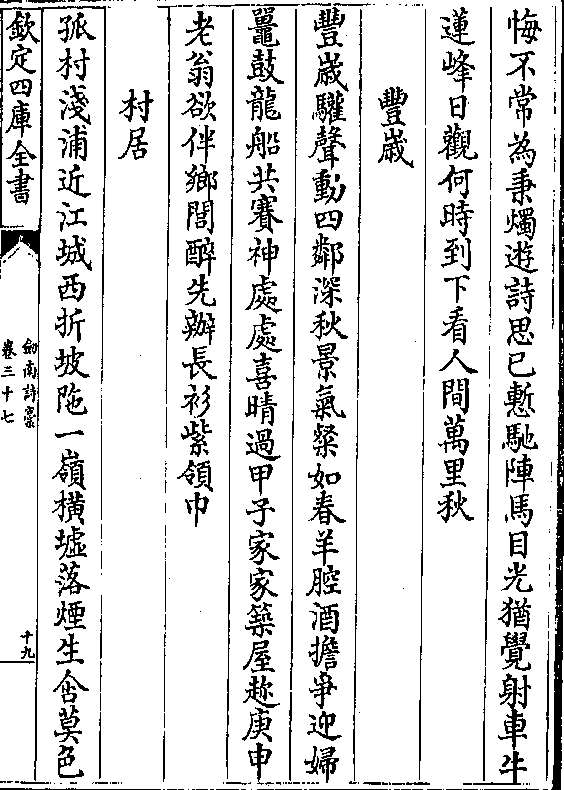 悔不常為秉燭遊詩思已慙馳陣馬目光猶覺射車牛
蓮峰日觀何時到下看人間萬里秋
豐歲
豐歲驩聲動四鄰深秋景氣粲如春羊腔酒擔爭迎婦
鼉鼓龍船共賽神處處喜晴過甲子家家築屋趂庚申
老翁欲伴鄉閭醉先辦長衫紫領巾
村居
孤村淺浦近江城西折坡陁一嶺橫墟落煙生含莫色
欽定四庫全書
劒南詩稾
卷三十七
十九